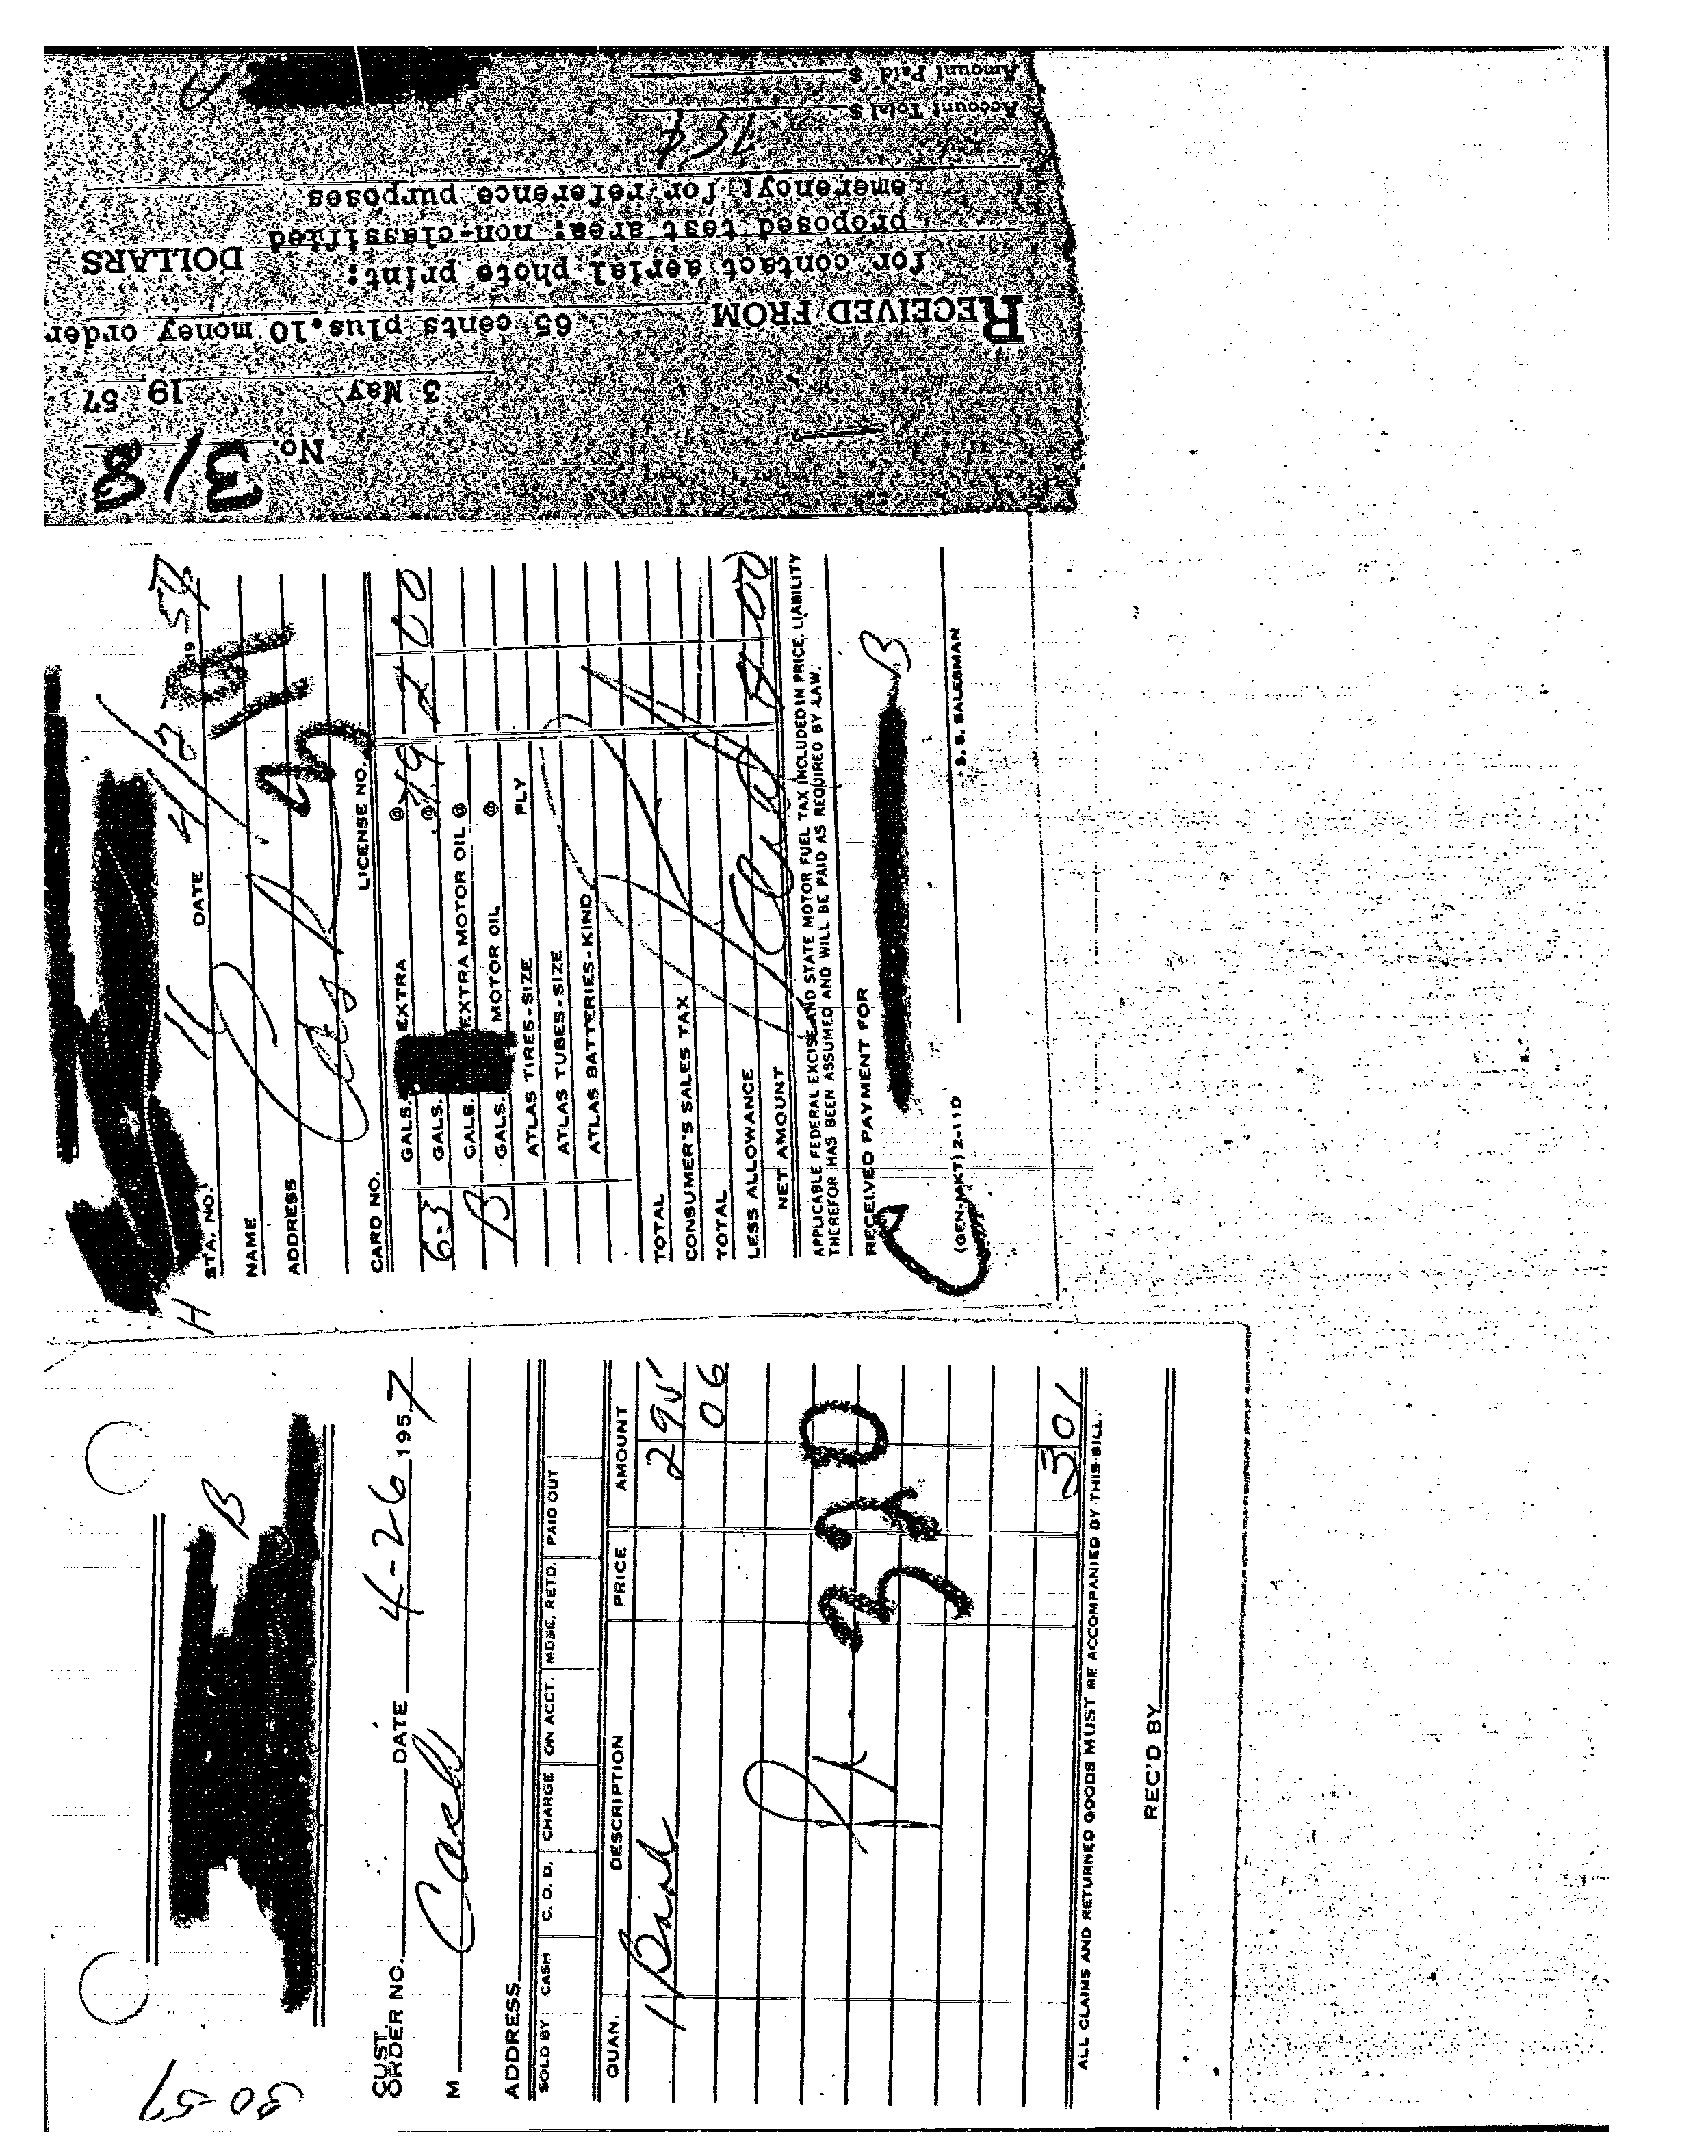 No. 318
3 May 19 57
RECEIVED FROM 65 cents plus .10 money order
for contact aerial photo print;
DOLLARS
proposed test area; non-classified
emerency; for reference purposes
Account Total $
75¢
Amount Paid $
H
STA. NO. DATE 4/22 1957
NAME
319
ADDRESS
Cash
CARD NO. LICENSE NO.
GALS. EXTRA @
6-3 GALS. @
GALS. EXTRA MOTOR OIL @
B GALS. MOTOR OIL @
ATLAS TIRES-SIZE PLY
ATLAS TUBES-SIZE
ATLAS BATTERIES-KIND
TOTAL
CONSUMER'S SALES TAX
TOTAL
LESS ALLOWANCE
NET AMOUNT
APPLICABLE FEDERAL EXCISE AND STATE MOTOR FUEL TAX INCLUDED IN PRICE. LIABILITY
THEREFOR HAS BEEN ASSUMED AND WILL BE PAID AS REQUIRED BY LAW.
RECEIVED PAYMENT FOR
C B
(GEN-MKT) 2-11D S. S. SALESMAN
30-57
B
CUST.
ORDER NO. DATE 4-26 1957
M Cash
ADDRESS
SOLD BY CASH C. O. D. CHARGE ON ACCT. MDSE. RETD. PAID OUT
QUAN. DESCRIPTION PRICE AMOUNT
1 295
06
Pd
320
301
ALL CLAIMS AND RETURNED GOODS MUST BE ACCOMPANIED BY THIS BILL.
REC'D BY